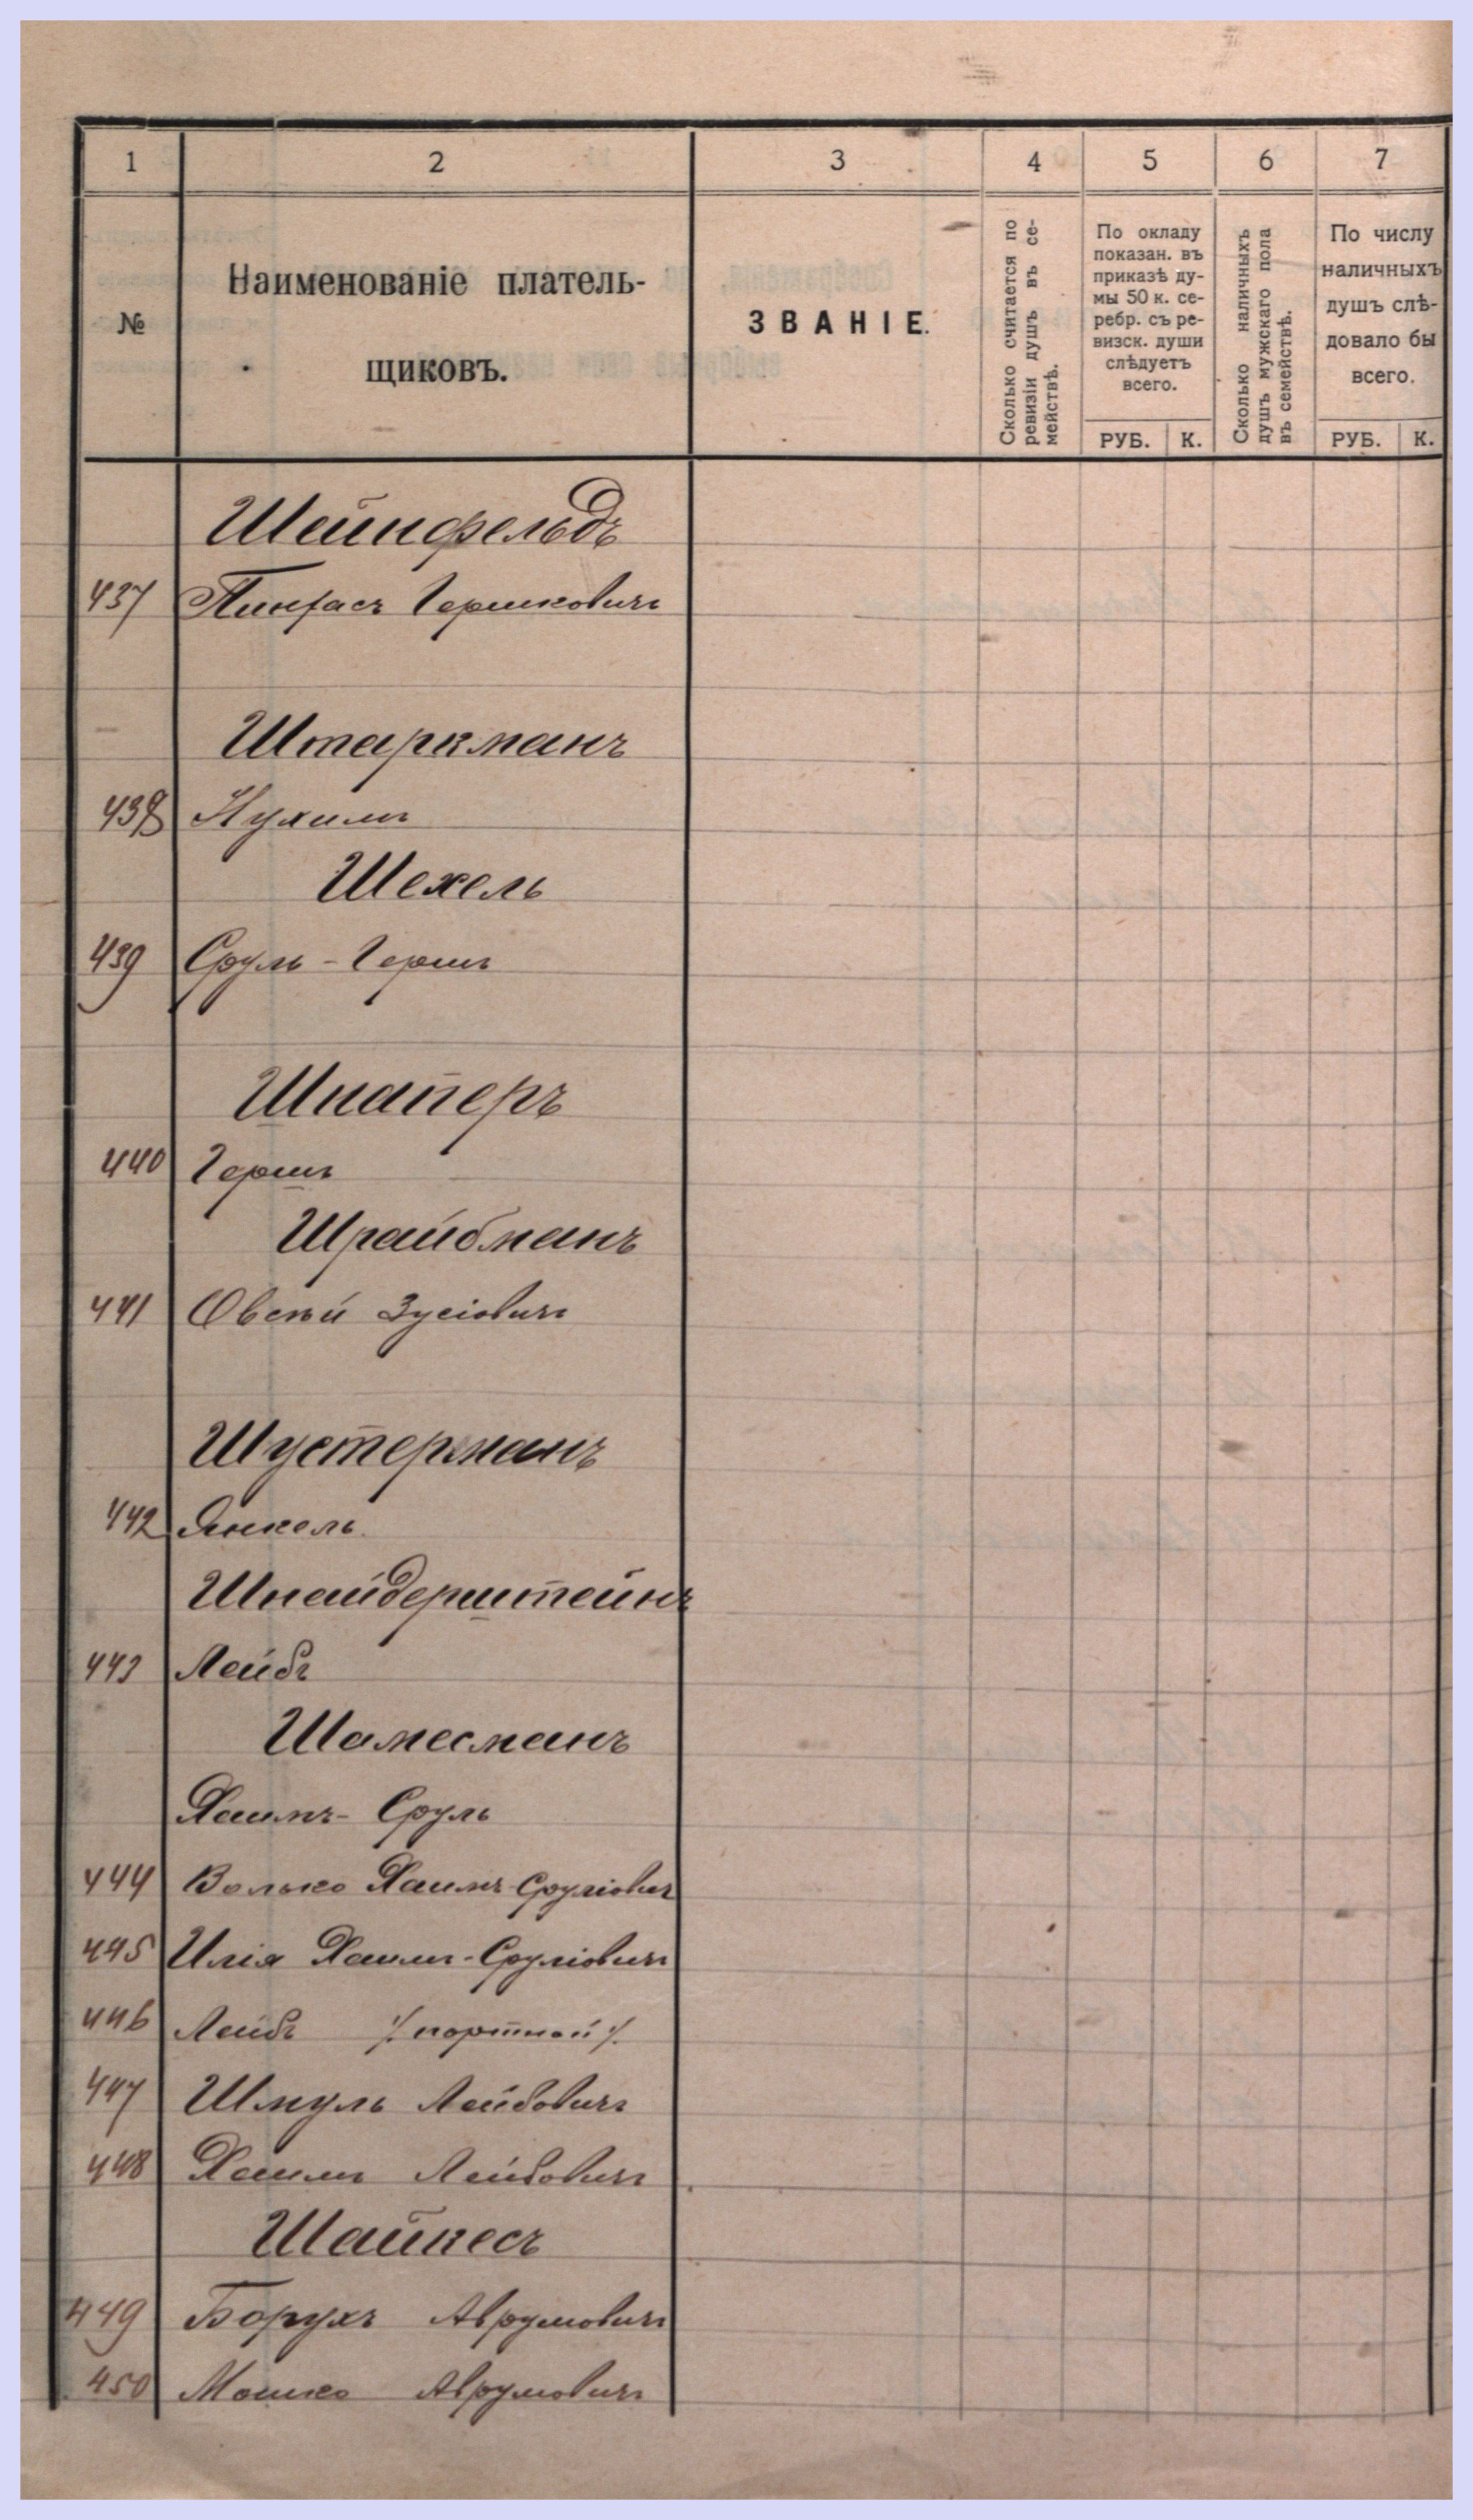 1 2 3 4 5 6 7
№
Наименованіе платель-
щиковъ.
ЗВАНІЕ.
Сколько считается по
ревизіи душъ въ се-
мействѣ.
По окладу
показан. въ
приказѣ ду-
мы 50 к. се-
ребр. съ ре-
визск. души
слѣдуетъ
всего.
РУБ. К.
Сколько наличныхъ
душъ мужскаго пола
въ семействѣ.
По числу
наличныхъ
душъ слѣ-
довало бы
всего.
РУБ. К.
Шейнфельдъ
437 Пинхасъ Гершковичъ
Штаркманъ
438 Нухимъ
Шехель
439 Сруль-Гершъ
Шнаперъ
440 Гершъ
Шрайбманъ
441 Овсѣй Зусіовичъ
Шустерманъ
442 Янкель
Шнайдерштейнъ
443 Лейбъ
Шамесманъ
Хаимъ-Сруль
444 Волько Хаимъ-Сруліовичъ
445 Илія Хаимъ-Сруліовичъ
446 Лейбъ /портной/.
447 Шмуль Лейбовичъ
448 Хаимъ Лейбовичъ
Шайкесъ
449 Борухъ Аврумовичъ
450 Мошко Аврумовичъ